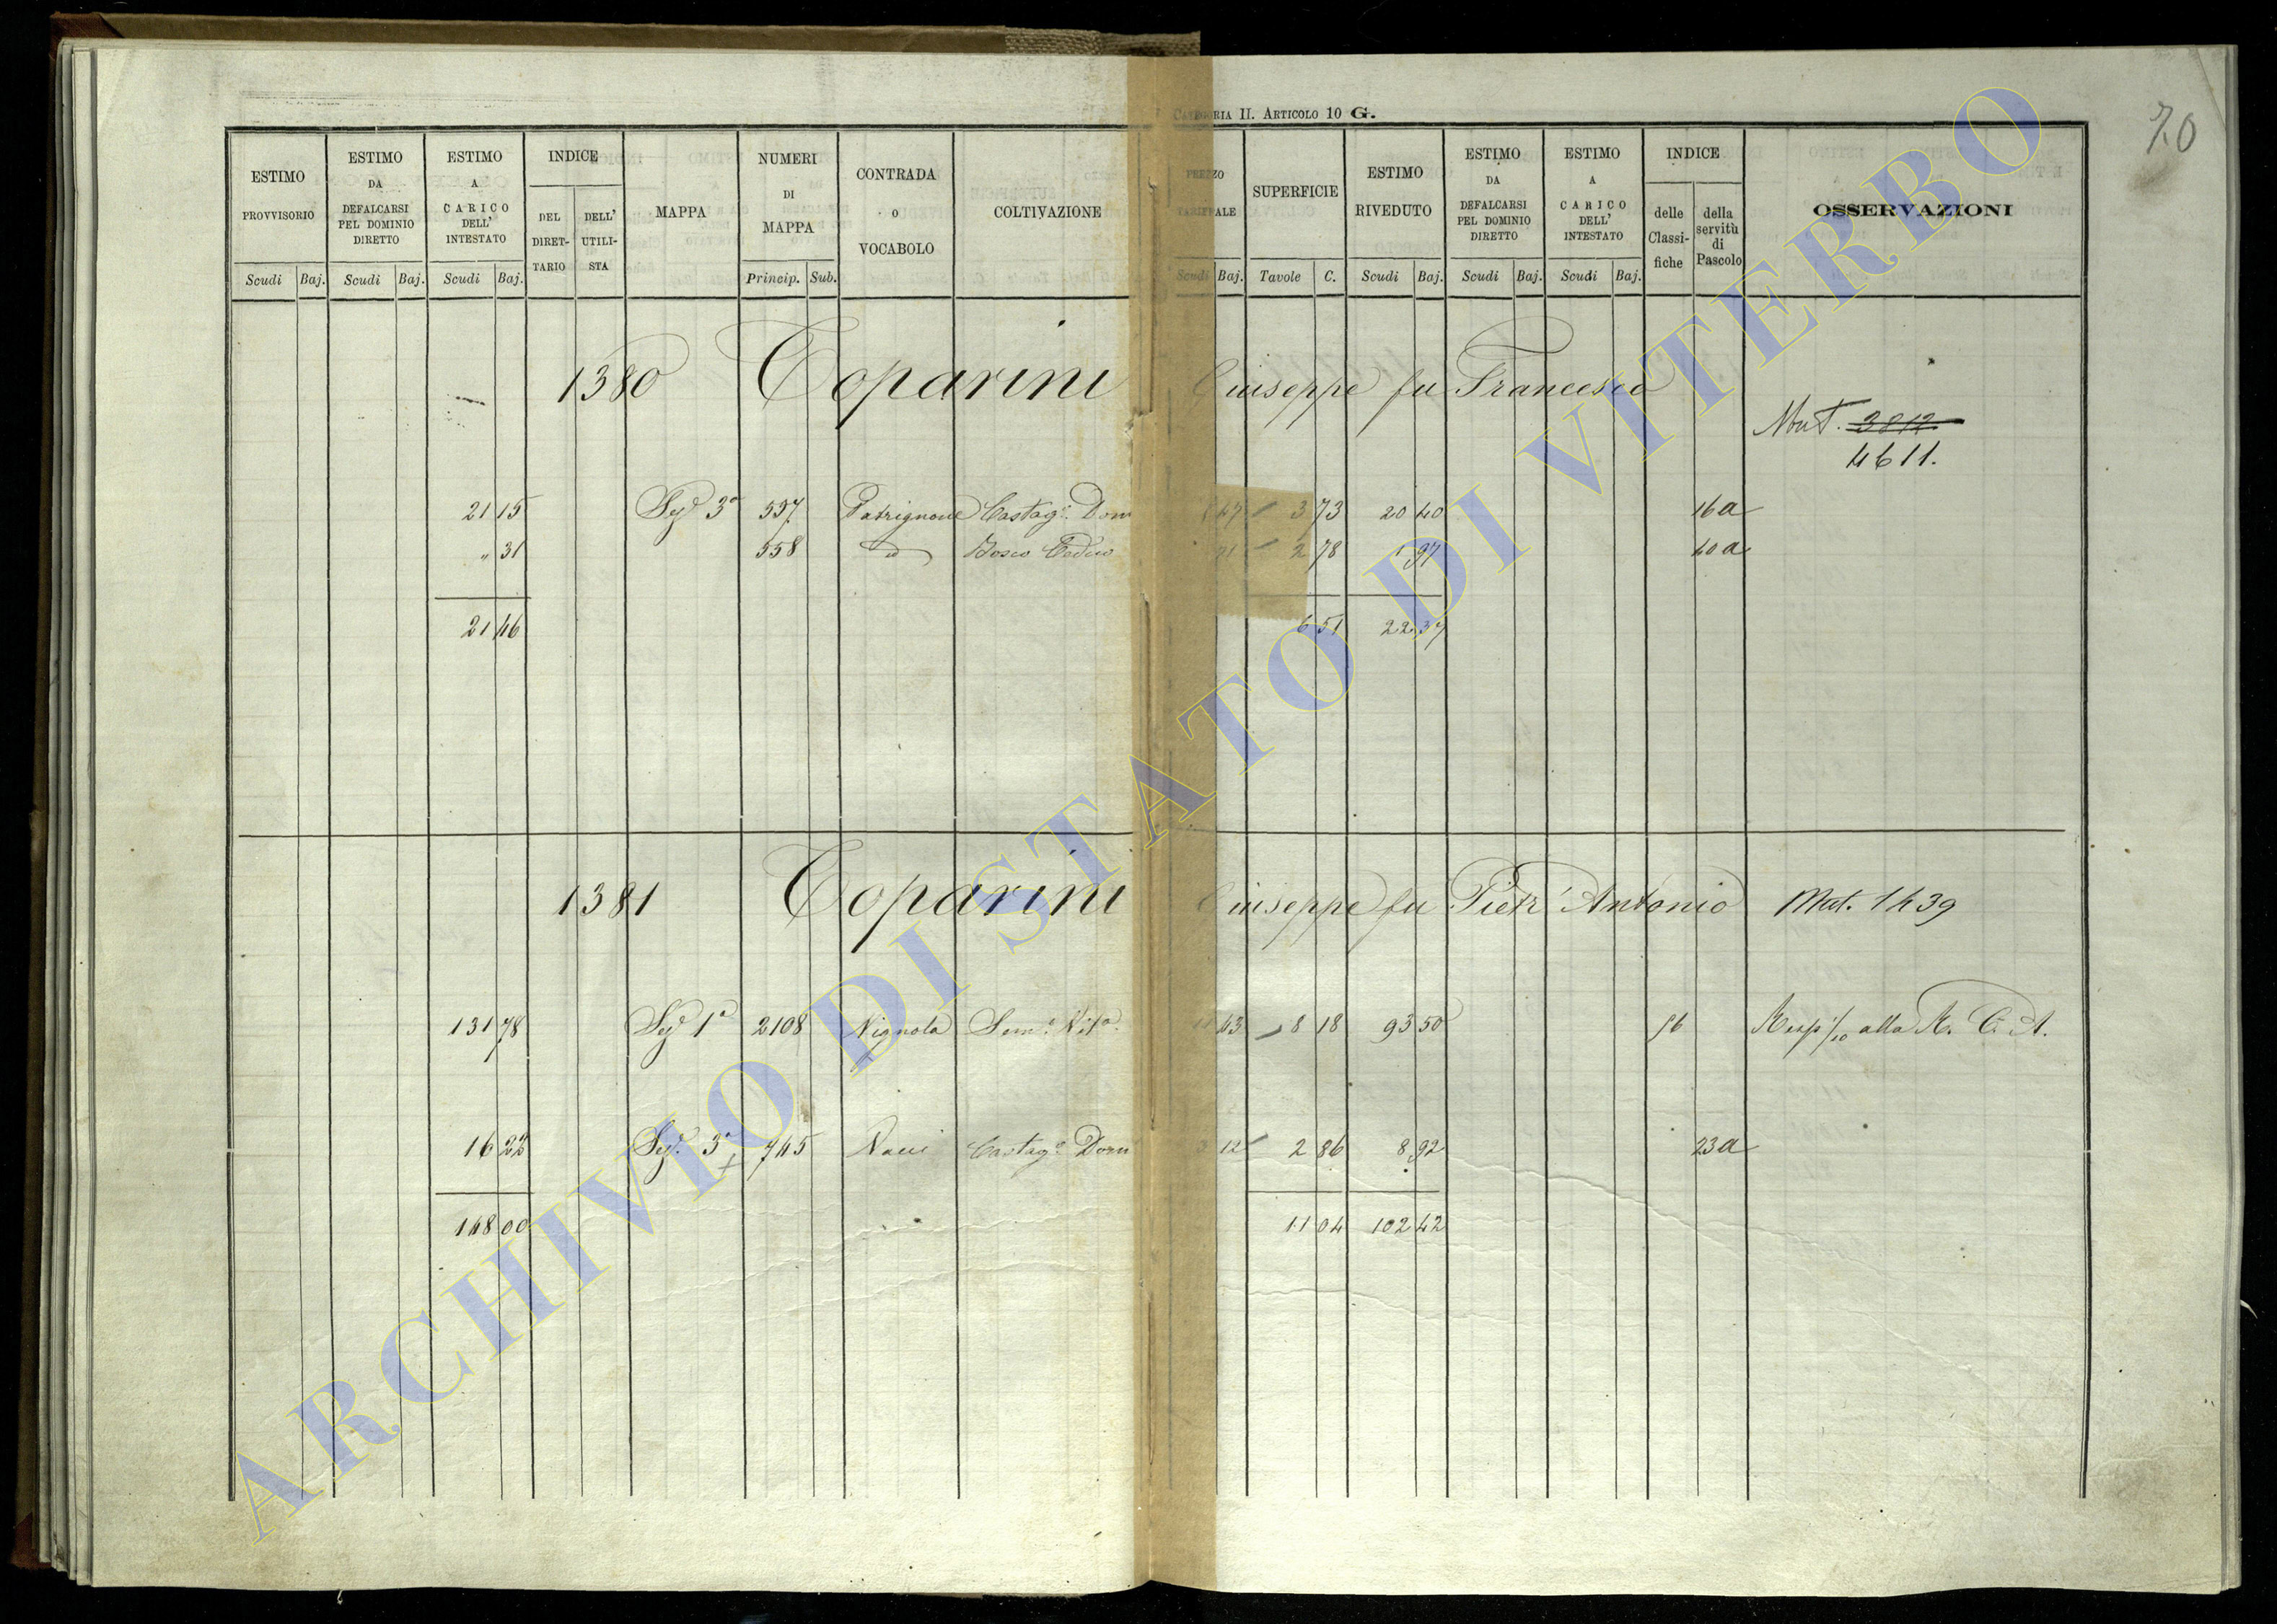 CATEGORIA II. ARTICOLO 10 G.
70
ESTIMO PROVVISORIO ESTIMO DA DEFALCARSI PEL DOMINIO DIRETTO ESTIMO A CARICO DELL' INTESTATO INDICE DEL DIRETTARIO DELL' UTILISTA MAPPA NUMERI DI MAPPA CONTRADA O VOCABOLO COLTIVAZIONE PREZZO TARIFFALE SUPERFICIE ESTIMO RIVEDUTO ESTIMO DA DEFALCARSI PEL DOMINIO DIRETTO ESTIMO A CARICO DELL' INTESTATO INDICE delle Classifiche della servitù di Pascolo OSSERVAZIONI
Scudi Baj. Scudi Baj. Scudi Baj. Princip. Sub. Scudi Baj. Tavole C. Scudi Baj. Scudi Baj. Scudi Baj.
1380 Toparini Giuseppe fu Francesco
Mut. 3812
4611.
21 15 Sez. 3a 557 Patrignone Castag. Dom 47 3 73 20 40 16 a
" 31 558 d Bosco Ceduo 21 2 78 1 97 40 a
21 46 6 51 22 37
1381 Toparini Giuseppe fu Pietr'Antonio Mut. 1439
131 78 Sez. 1a 2108 Vignola Sem. Vit. 43 8 18 93 50 56 alla R. C. A.
16 22 Sez. 3a 745 Castag. Dom 3 12 2 86 8 92 23 a
148 00 11 04 102 42
ARCHIVIO DI STATO DI VITERBO